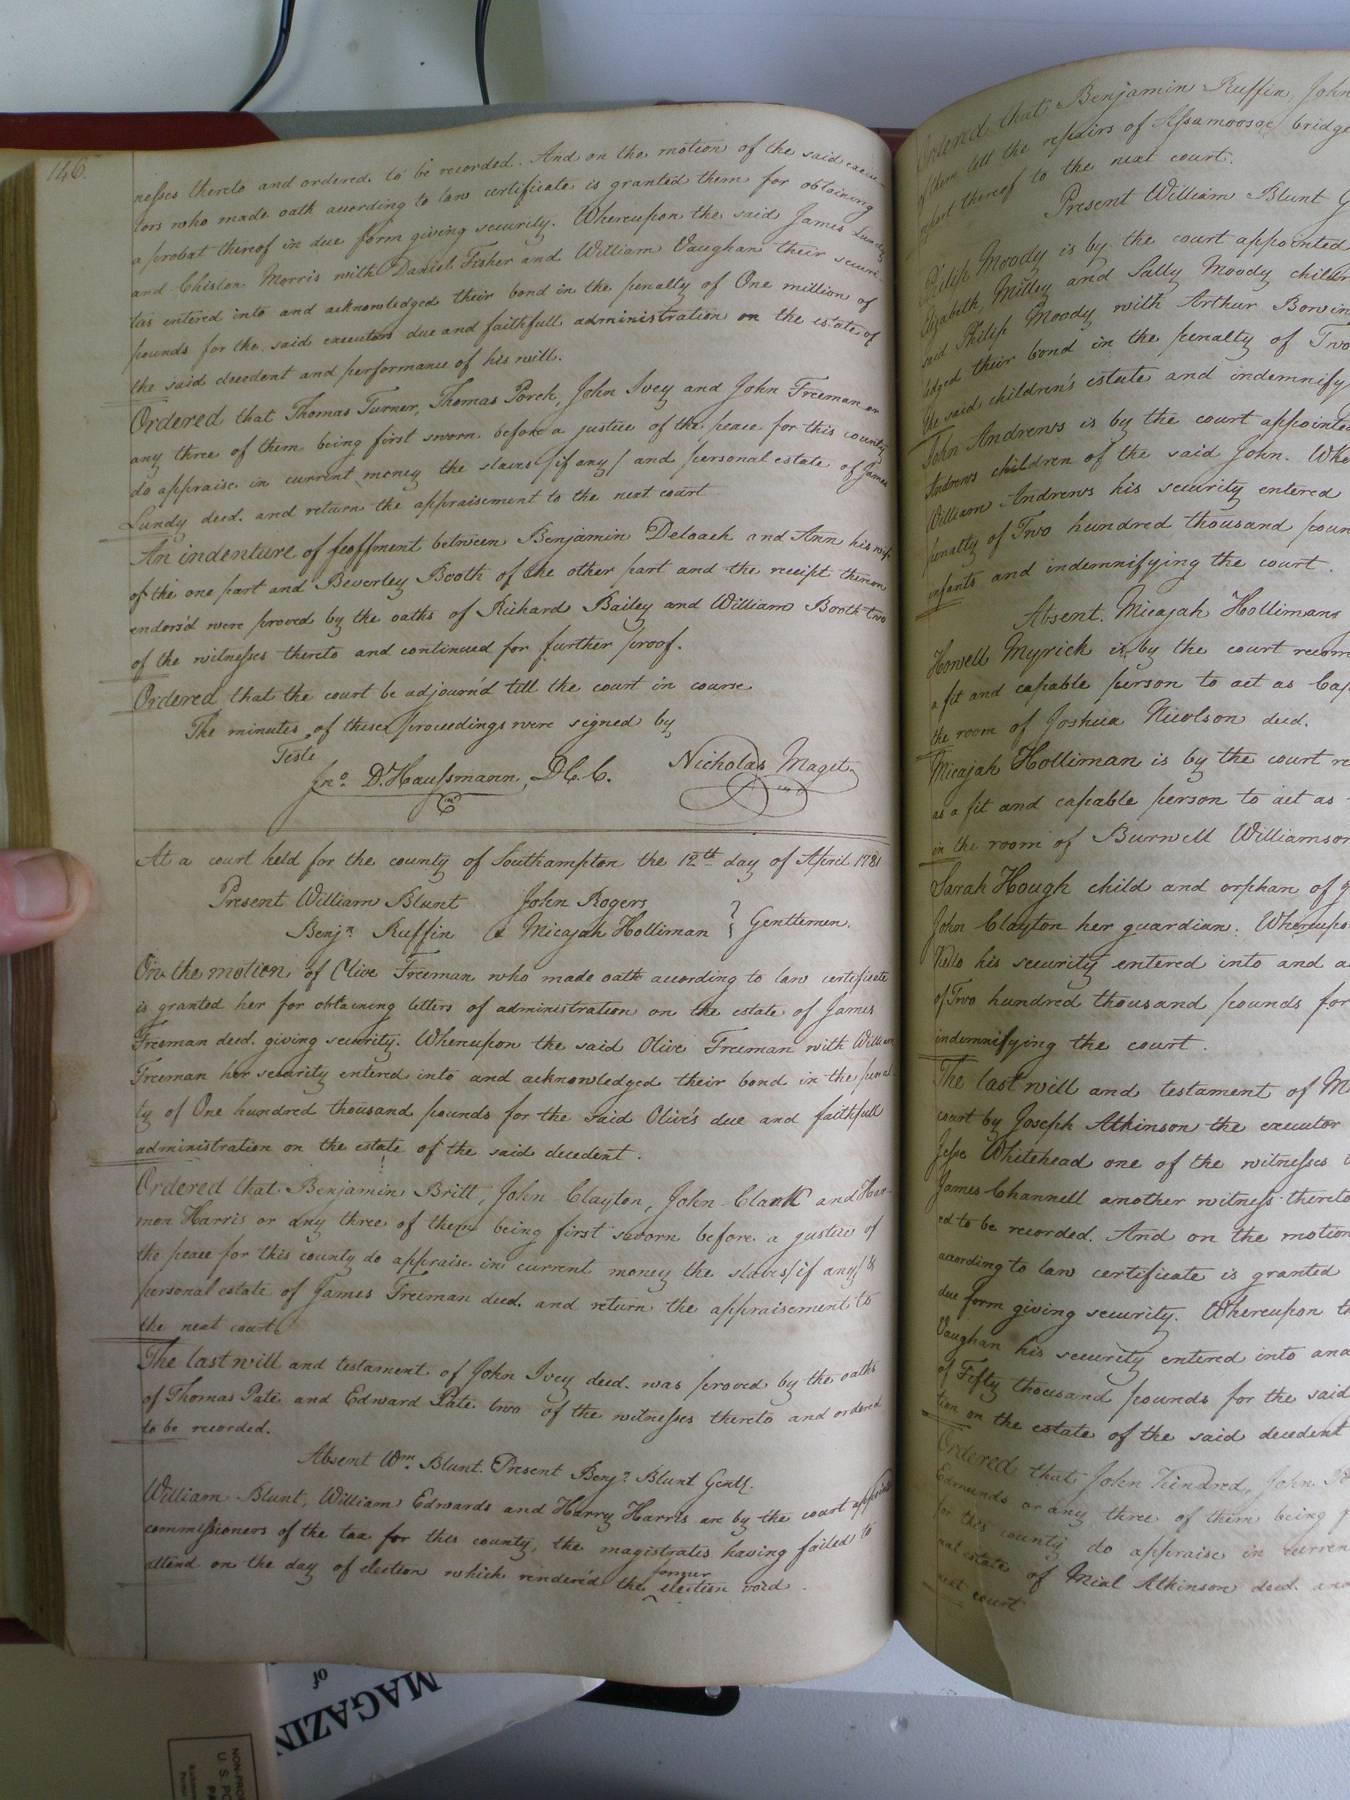 146.
nesses thereto and ordered to be recorded. And on the motion of the said execu-
tors who made oath according to law certificate is granted them for obtaining
a probat thereof in due form giving security. Whereupon the said James Lundy
and Chislon Morris with Daniel Fisher and William Vaughan their securi-
ties entered into and acknowledged their bond in the penalty of One million of
pounds for the said executors due and faithfull administration on the estate of
the said decedent and performance of his will.
Ordered that Thomas Turner, Thomas Porch, John Ivey and John Freeman or
any three of them being first sworn before a justice of the peace for this county
do appraise in current money the slaves /if any/ and personal estate of James
Lundy deed. and return the appraisement to the next court
An indenture of feoffment between Benjamin Deloach and Ann his wife
of the one part and Beverley Booth of the other part and the receipt thereon
endors'd were proved by the oaths of Richard Bailey and William Booth two
of the witnesses thereto and continued for further proof.
Ordered that the court be adjourn'd till the court in course
The minutes of these proceedings were signed by
Teste
Jno. D. Haussmann, D.C.C. Nicholas Maget
At a court held for the county of Southampton the 12th day of April 1781
Present William Blunt John Rogers
Benjn Ruffin & Micajah Holliman } Gentlemen.
On the motion of Olive Freeman who made oath according to law certificate
is granted her for obtaining letters of administration on the estate of James
Freeman deed. giving security. Whereupon the said Olive Freeman with William
Freeman her security entered into and acknowledged their bond in the penal-
ty of One hundred thousand pounds for the said Olive's due and faithfull
administration on the estate of the said decedent.
Ordered that Benjamin Britt, John Clayton, John Clark and Har-
mon Harris or any three of them being first sworn before a justice of
the peace for this county do appraise in current money the slaves /if any/ &
personal estate of James Freeman deed. and return the appraisement to
the next court
The last will and testament of John Ivey deed. was proved by the oaths
of Thomas Pate and Edward Pate two of the witnesses thereto and ordered
to be recorded.
Absent Wm. Blunt. Present Benjn Blunt Gent.
William Blunt, William Edwards and Harry Harris are by the court appointed
commissioners of the tax for this county, the magistrates having failed to
attend on the day of election which render'd the former election void.
Ordered that Benjamin Ruffin, John
of them lett the repairs of Assamoosoc bridge
report thereof to the next court.
Present William Blunt G
Philip Moody is by the court appointed
Elizabeth, Milley and Sally Moody childr
said Philip Moody with Arthur Bowin
ledged their bond in the penalty of Two
the said children's estate and indemnify
John Andrews is by the court appointed
Andrews children of the said John. Whe
William Andrews his security entered
penalty of Two hundred thousand poun
infants and indemnifying the court.
Absent. Micajah Hollimans
Howell Myrick is by the court recom
a fit and capable person to act as Cap
the room of Joshua Nicolson deed.
Micajah Holliman is by the court re
as a fit and capable person to act as
in the room of Burwell Williamson
Sarah Hough child and orphan of
John Clayton her guardian. Whereupo
Kello his security entered into and a
of Two hundred thousand pounds for
indemnifying the court.
The last will and testament of M
court by Joseph Atkinson the executor
Jesse Whitehead one of the witnesses
James Channell another witness thereto
ed to be recorded. And on the motion
according to law certificate is granted
due form giving security. Whereupon th
Vaughan his security entered into and
of Fifty thousand pounds for the said
tion on the estate of the said decedent
Ordered that John Kindred, John
Edmunds or any three of them being f
for this county do appraise in curren
nal estate of Mial Atkinson deed. and
next court
MAGAZIN
of
NON-PRO
U.S. PO
PA